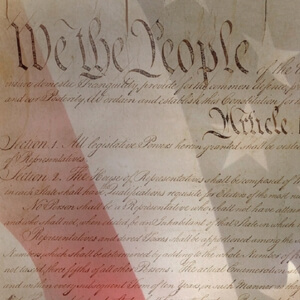 We the People of the
insure domestic Tranquility, provide for the common defence,
and our Posterity, do ordain and establish this Constitution for
Article
Section. 1. All legislative Powers herein granted shall be vested
of Representatives.
Section. 2. The House of Representatives shall be composed of
in each State shall have Qualifications requisite for Electors of the most
No Person shall be a Representative who shall not have
and who shall not, when elected, be an Inhabitant of that State in which
Representatives and direct Taxes shall be apportioned among the
Numbers, which shall be determined by adding to the whole Number of
not taxed, three fifths of all other Persons. The actual Enumeration
and within every subsequent Term of ten Years, in such Manner as